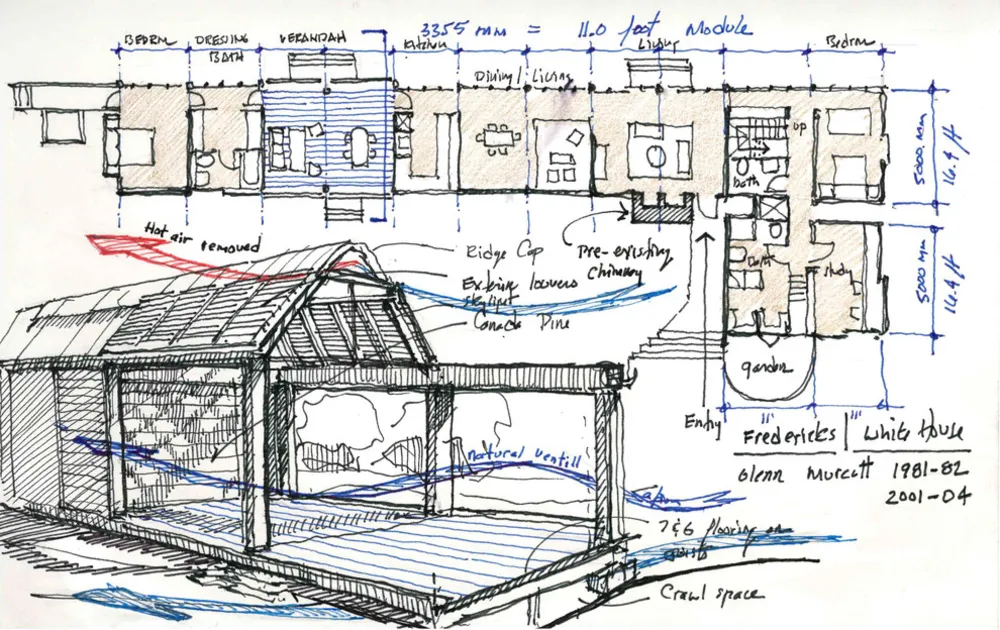 3355 mm = 11.0 foot Module
BEDRM
DRESSING
BATH
VERANDAH
Kitchen
Dining / Living
Living
Bedrm
up
bath
5000 mm
16.4 ft
5000 mm
16.4 ft
study
garden
Entry
Pre-existing
Chimney
Hot air removed
Ridge Cap
Exterior louvers
skylight
Canada Pine
natural ventill
T&G flooring on
joists
Crawl space
11'
11'
Fredericks | White House
Glenn Murcutt 1981-82
2001-04